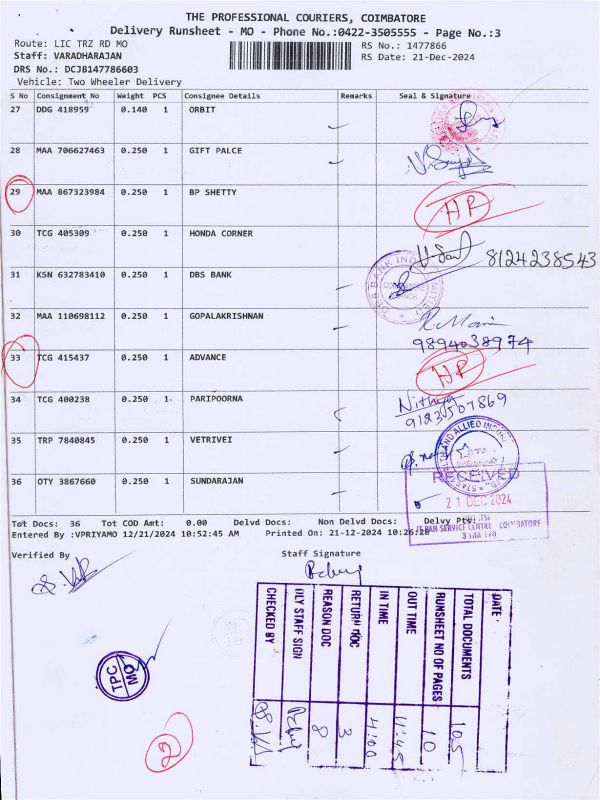 THE PROFESSIONAL COURIERS, COIMBATORE
Delivery Runsheet - MO - Phone No.:0422-3505555 - Page No.:3
Route: LIC TRZ RD MO
RS No.: 1477866
Staff: VARADHARAJAN
RS Date: 21-Dec-2024
DRS No.: DCJB147786603
Vehicle: Two Wheeler Delivery
S No Consignment No Weight PCS Consignee Details Remarks Seal & Signature
27 DDG 418959 0.140 1 ORBIT
28 MAA 706627463 0.250 1 GIFT PALCE
29 MAA 867323984 0.250 1 BP SHETTY HP
30 TCG 405309 0.250 1 HONDA CORNER
8124238543
31 KSN 632783410 0.250 1 DBS BANK
32 MAA 110698112 0.250 1 GOPALAKRISHNAN
9894038974
33 TCG 415437 0.250 1 ADVANCE HP
34 TCG 400238 0.250 1 PARIPOORNA Nithya
9123507869
35 TRP 7840845 0.250 1 VETRIVEI
36 OTY 3867660 0.250 1 SUNDARAJAN
RECEIVED
21 DEC 2024
Tot Docs: 36 Tot COD Amt: 0.00 Delvd Docs: Non Delvd Docs: Delvy Pty:
Entered By :VPRIYAMO 12/21/2024 10:52:45 AM Printed On: 21-12-2024 10:26:28
Verified By
Staff Signature
DATE
TOTAL DOCUMENTS 105
RUNSHEET NO OF PAGES 10
OUT TIME 11:45
IN TIME 4:00
RETURN DOC 3
REASON DOC 8
DLY STAFF SIGN
CHECKED BY
TPC
MO
2